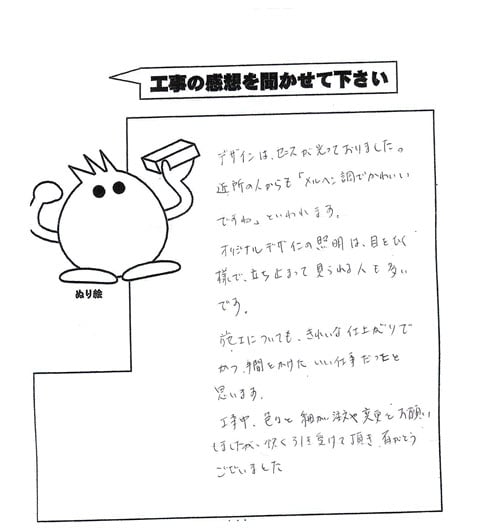 工事の感想を聞かせて下さい
デザインは、センスが光っておりました。
近所の人からも「メルヘン調でかわいい
ですね」といわれます。
オリジナルデザインの照明は、目をひく
様で、立ち止まって見られる人も多い
です。
ぬり絵
施工についても、きれいな仕上がりで
かつ、手間をかけた いい仕事だったと
思います。
工事中、色々と細かい注文や変更をお願い
しましたが、快く引き受けて頂き有がとう
ございました